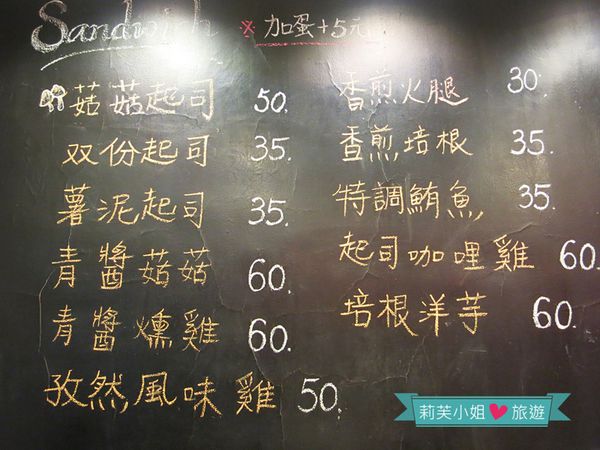 Sandwich ※加蛋+5元
菇菇起司 50.
双份起司 35.
薯泥起司 35.
青醬菇菇 60.
青醬燻雞 60.
孜然風味雞 50.
香煎火腿 30.
香煎培根 35.
特調鮪魚 35.
起司咖哩雞 60.
培根洋芋 60.
莉芙小姐❤旅遊